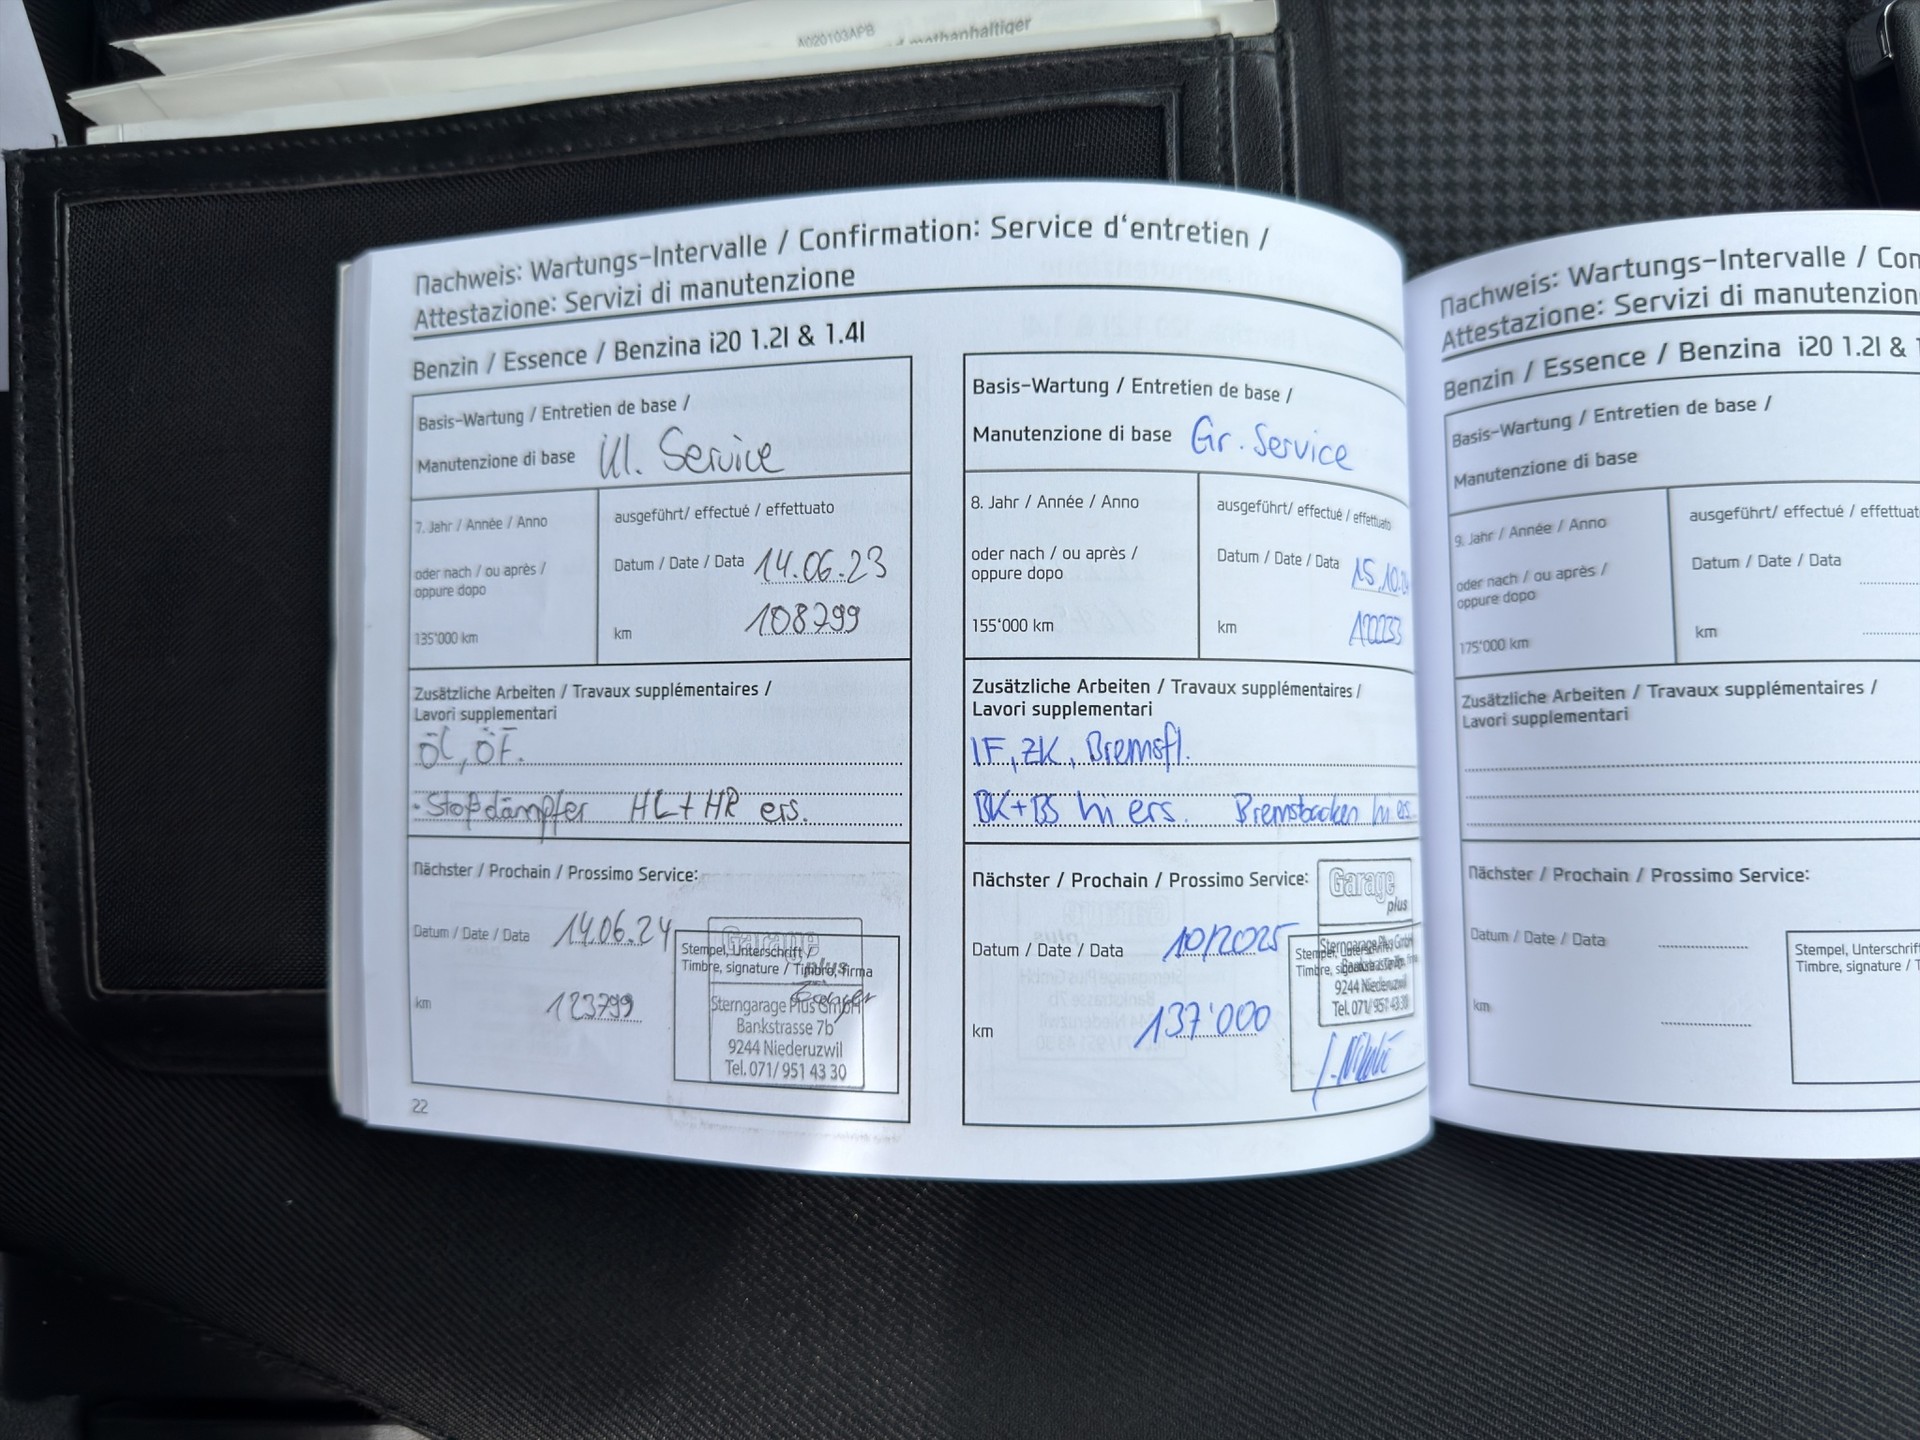 A020103APB
methanhaltiger
Nachweis: Wartungs-Intervalle / Confirmation: Service d'entretien /
Attestazione: Servizi di manutenzione
Benzin / Essence / Benzina i20 1.2l & 1.4l
Basis-Wartung / Entretien de base /
Manutenzione di base Kl. Service
7. Jahr / Année / Anno
oder nach / ou après /
oppure dopo
135'000 km
ausgeführt/ effectué / effettuato
Datum / Date / Data 14.06.23
km 108799
Zusätzliche Arbeiten / Travaux supplémentaires /
Lavori supplementari
ÖL, ÖF.
- Stoßdämpfer HL+HR ers.
Nächster / Prochain / Prossimo Service:
Datum / Date / Data 14.06.24
km 123799
Stempel, Unterschrift /
Timbre, signature / Timbro, firma
Garage
plus
Sterngarage Plus GmbH
Bankstrasse 7b
9244 Niederuzwil
Tel. 071/ 951 43 30
22
Basis-Wartung / Entretien de base /
Manutenzione di base Gr. Service
8. Jahr / Année / Anno
oder nach / ou après /
oppure dopo
155'000 km
ausgeführt/ effectué / effettuato
Datum / Date / Data 15.10.
km
Zusätzliche Arbeiten / Travaux supplémentaires /
Lavori supplementari
IF, ZK, Bremsfl.
BK+BS hi ers. Bremsbacken hi ers.
Nächster / Prochain / Prossimo Service:
Datum / Date / Data 10/2025
km 137'000
Garage
plus
Stempel, Unterschrift
Sterngarage Plus GmbH
9244 Niederuzwil
Tel. 071/ 951 43 30
Nachweis: Wartungs-Intervalle / Con
Attestazione: Servizi di manutenzion
Benzin / Essence / Benzina i20 1.2l &
Basis-Wartung / Entretien de base /
Manutenzione di base
9. Jahr / Année / Anno
oder nach / ou après /
oppure dopo
175'000 km
ausgeführt/ effectué / effettuat
Datum / Date / Data
km
Zusätzliche Arbeiten / Travaux supplémentaires /
Lavori supplementari
Nächster / Prochain / Prossimo Service:
Datum / Date / Data
km
Stempel, Unterschrif
Timbre, signature / T